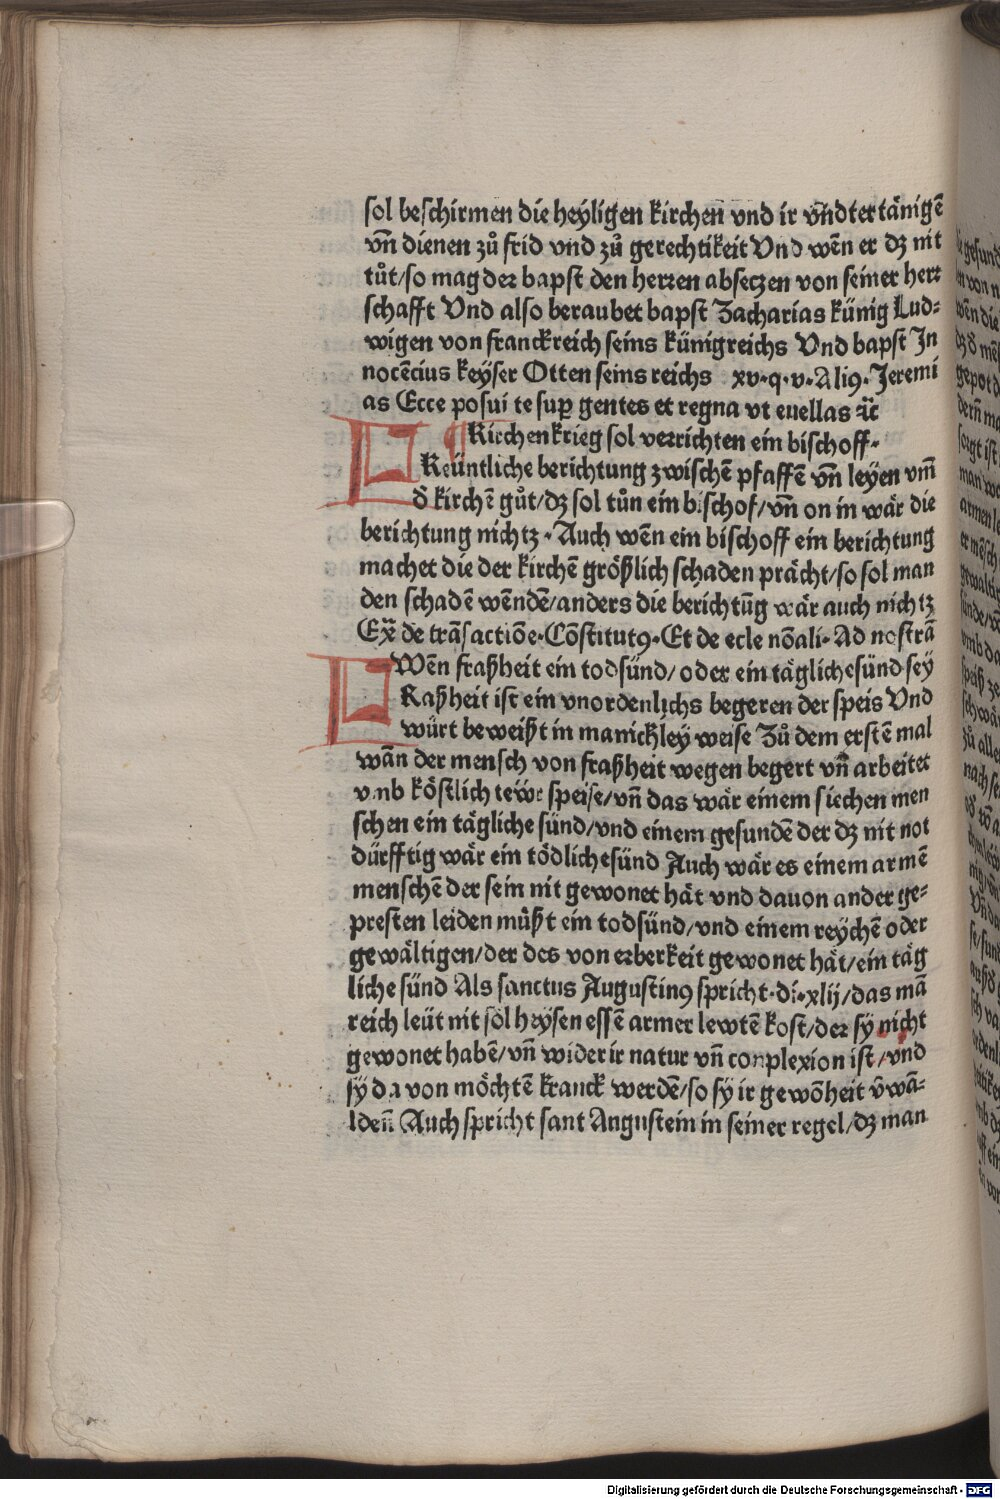 sol beschirmen die heyligen kirchen vnd ir vndtertånigē
vn̄ dienen zů frid vnd zů gerechtikeit Vnd wēn er dz nit
tůt/so mag der bapst den herren absetzen von seiner herr
schafft Vnd also beraubet bapst Zacharias künig Lud⸗
wigen von franckreich seins künigreichs Vnd bapst In
nocēcius keyser Otten seins reichs xv·q·v·Aliꝰ·Jeremi
as Ecce posui te suꝑ gentes et regna vt euellas ꝛc̄
Kirchenkrieg sol verrichten ein bischoff·
F Reüntliche berichtung zwischē pfaffē vn̄ leyen vm̄
d̕ kirchē gůt/dz sol tůn ein bischof/vn̄ on in wår die
berichtung nichtz·Auch wēn ein bischoff ein berichtung
machet die der kirchē größlich schaden prächt/so sol man
den schadē wēndē/anders die berichtūg wår auch nichtz
Ex̄ de trāsactiōe·Cōstitutꝰ·Et de ecle nōali·Ad nostrā
Wēn fraßheit ein todsünd/oder ein täglichesünd sey
F Raßheit ist ein vnordenlichs begeren der speis Vnd
würt beweißt in manichley weise Zů dem erstē mal
wān der mensch von fraßheit wegen begert vn̄ arbeitet
vmb köstlich tewre speise/vn̄ das wår einem siechen men
schen ein tägliche sünd/vnd einem gesundē der dz nit not
dürfftig wår ein tödlichesünd Auch wår es einem armē
menschē der sein nit gewonet håt vnd dauon ander ge⸗
presten leiden müßt ein todsünd/vnd einem reychē oder
gewältigen/der des von erberkeit gewonet håt/ein täg
liche sünd Als sanctus Augustinꝰ spricht·di·xlij/das mā
reich leüt nit sol heysen essē armer lewtē kost/der sy nicht
gewonet habē/vn̄ wider ir natur vn̄ conplexion ist/vnd
sy da von möchtē kranck werdē/so sy ir gewōheit v̄wā⸗
lden̄ Auch spricht sant Augustein in seiner regel/dz man
Digitalisierung gefördert durch die Deutsche Forschungsgemeinschaft - DFG